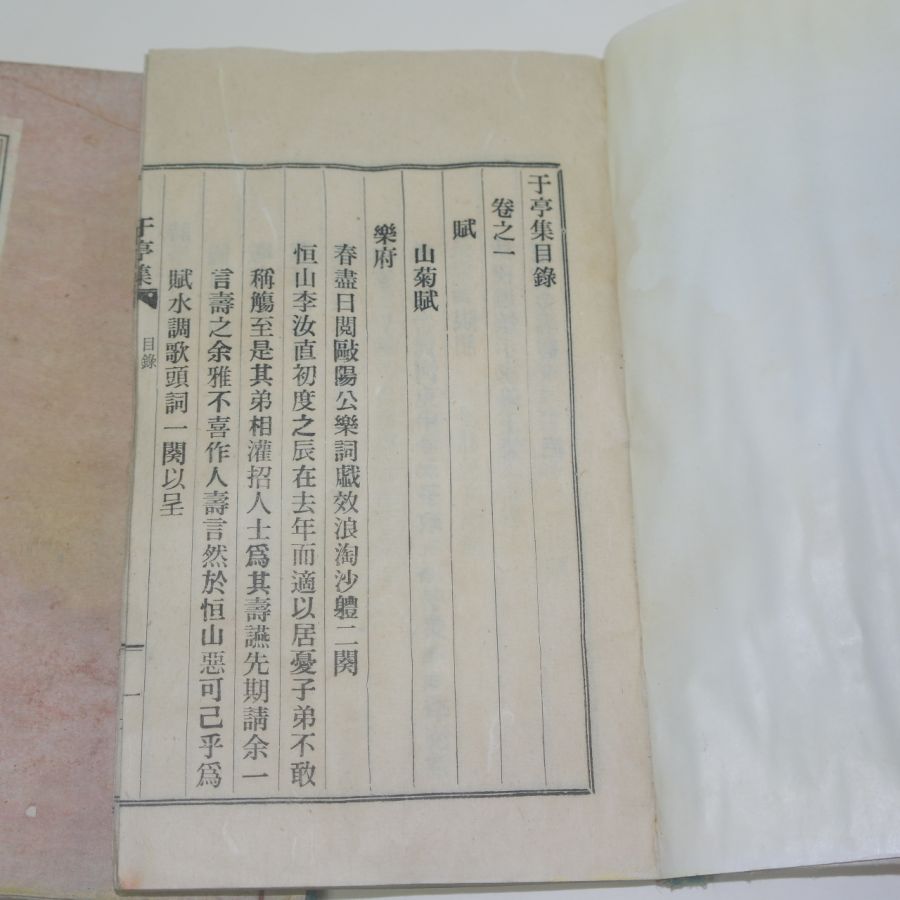 于亭集目錄
卷之一
賦
山菊賦
樂府
春盡日閱歐陽公樂詞戱效浪淘沙軆二闋
恒山李汝直初度之辰在去年而適以居憂子弟不敢
稱觴至是其弟相灌招人士爲其壽讌先期請余一
言壽之余雅不喜作人壽言然於恒山惡可已乎爲
賦水調歌頭詞一闋以呈
于亭集
目錄
一